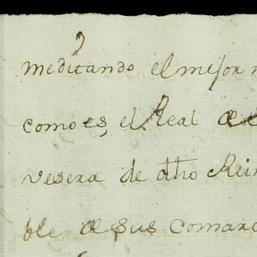 meditando el mejor
como es, el Real de
vesera de dho Rein
ble de sus comarc